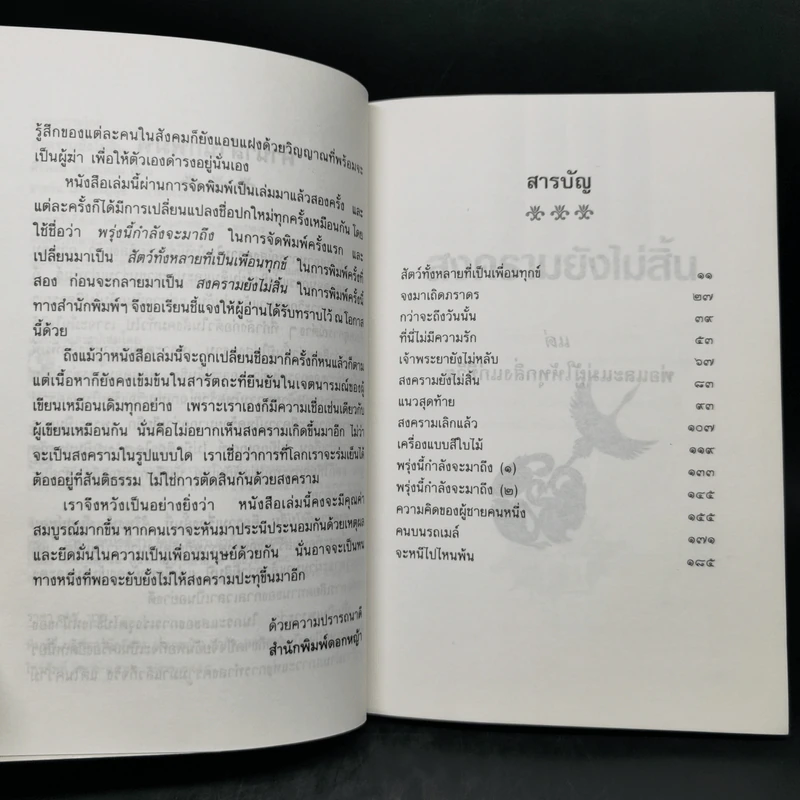 รู้สึกของแต่ละคนในสังคมก็ยังแอบแฝงด้วยวิญญาณที่พร้อมจะ
เป็นผู้ฆ่า เพื่อให้ตัวเองดำรงอยู่นั่นเอง
หนังสือเล่มนี้ผ่านการจัดพิมพ์เป็นเล่มมาแล้วสองครั้ง และ
แต่ละครั้งก็ได้มีการเปลี่ยนแปลงชื่อปกใหม่ทุกครั้งเหมือนกัน โดย
ใช้ชื่อว่า พรุ่งนี้กำลังจะมาถึง ในการจัดพิมพ์ครั้งแรก และ
เปลี่ยนมาเป็น สัตว์ทั้งหลายที่เป็นเพื่อนทุกข์ ในการพิมพ์ครั้งที่
สอง ก่อนจะกลายมาเป็น สงครามยังไม่สิ้น ในการพิมพ์ครั้งนี้
ทางสำนักพิมพ์ฯ จึงขอเรียนชี้แจงให้ผู้อ่านได้รับทราบไว้ ณ โอกาส
นี้ด้วย
ถึงแม้ว่าหนังสือเล่มนี้จะถูกเปลี่ยนชื่อมากี่ครั้งกี่หนแล้วก็ตาม
แต่เนื้อหาก็ยังคงเข้มข้นในสารัตถะที่ยืนยันในเจตนารมณ์ของผู้
เขียนเหมือนเดิมทุกอย่าง เพราะเราเองก็มีความเชื่อเช่นเดียวกับ
ผู้เขียนเหมือนกัน นั่นคือไม่อยากเห็นสงครามเกิดขึ้นมาอีก ไม่ว่า
จะเป็นสงครามในรูปแบบใด เราเชื่อว่าการที่โลกเราจะร่มเย็นได้
ต้องอยู่ที่สันติธรรม ไม่ใช่การตัดสินกันด้วยสงคราม
เราจึงหวังเป็นอย่างยิ่งว่า หนังสือเล่มนี้คงจะมีคุณค่า
สมบูรณ์มากขึ้น หากคนเราจะหันมาประนีประนอมกันด้วยเหตุผล
และยึดมั่นในความเป็นเพื่อนมนุษย์ด้วยกัน นั่นอาจจะเป็นหน
ทางหนึ่งที่พอจะยับยั้งไม่ให้สงครามปะทุขึ้นมาอีก
ด้วยความปรารถนาดี
สำนักพิมพ์ดอกหญ้า
สารบัญ
สัตว์ทั้งหลายที่เป็นเพื่อนทุกข์ ๑๑
จงมาเถิดภราดร ๒๗
กว่าจะถึงวันนั้น ๓๙
ที่นี่ไม่มีความรัก ๕๓
เจ้าพระยายังไม่หลับ ๖๗
สงครามยังไม่สิ้น ๘๓
แนวสุดท้าย ๙๓
สงครามเลิกแล้ว ๑๐๗
เครื่องแบบสีใบไม้ ๑๑๙
พรุ่งนี้กำลังจะมาถึง (๑) ๑๓๓
พรุ่งนี้กำลังจะมาถึง (๒) ๑๔๕
ความคิดของผู้ชายคนหนึ่ง ๑๕๕
คนบนรถเมล์ ๑๗๑
จะหนีไปไหนพ้น ๑๘๕